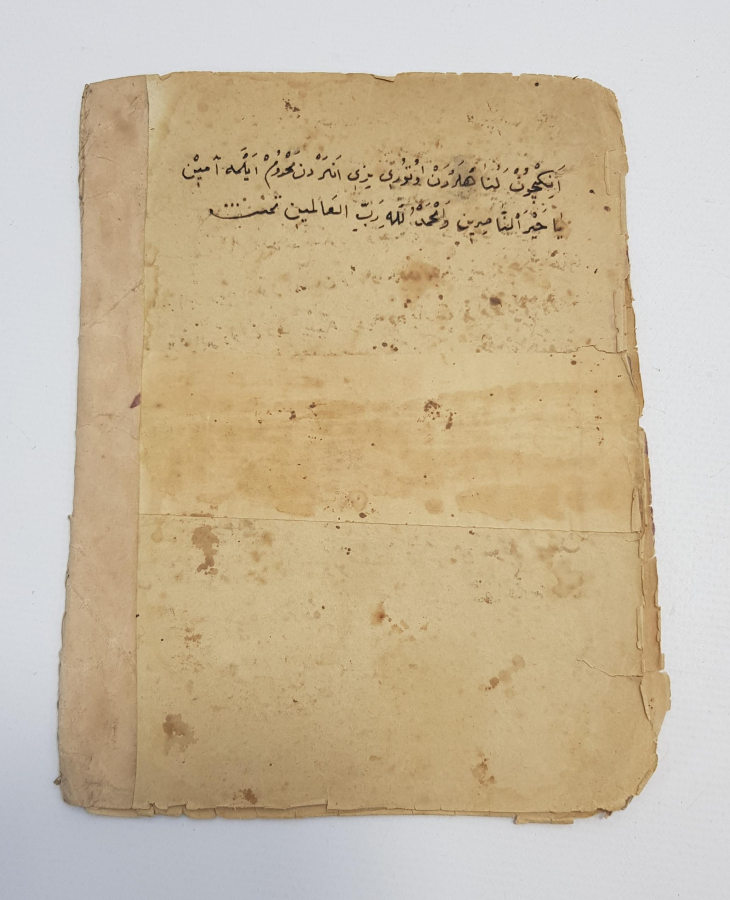 اَنِكْچُونْ كُنَاهْلَرْدَنْ اوُتوُرِي بِزِي اَنْلَرْدن مَحْرُومْ اَيْلَمَه آمِيْن
يَا خَيْرَ النَّاصِرِين وَالْحَمْدُ للهِ رَبِّ العَالَمين تمت